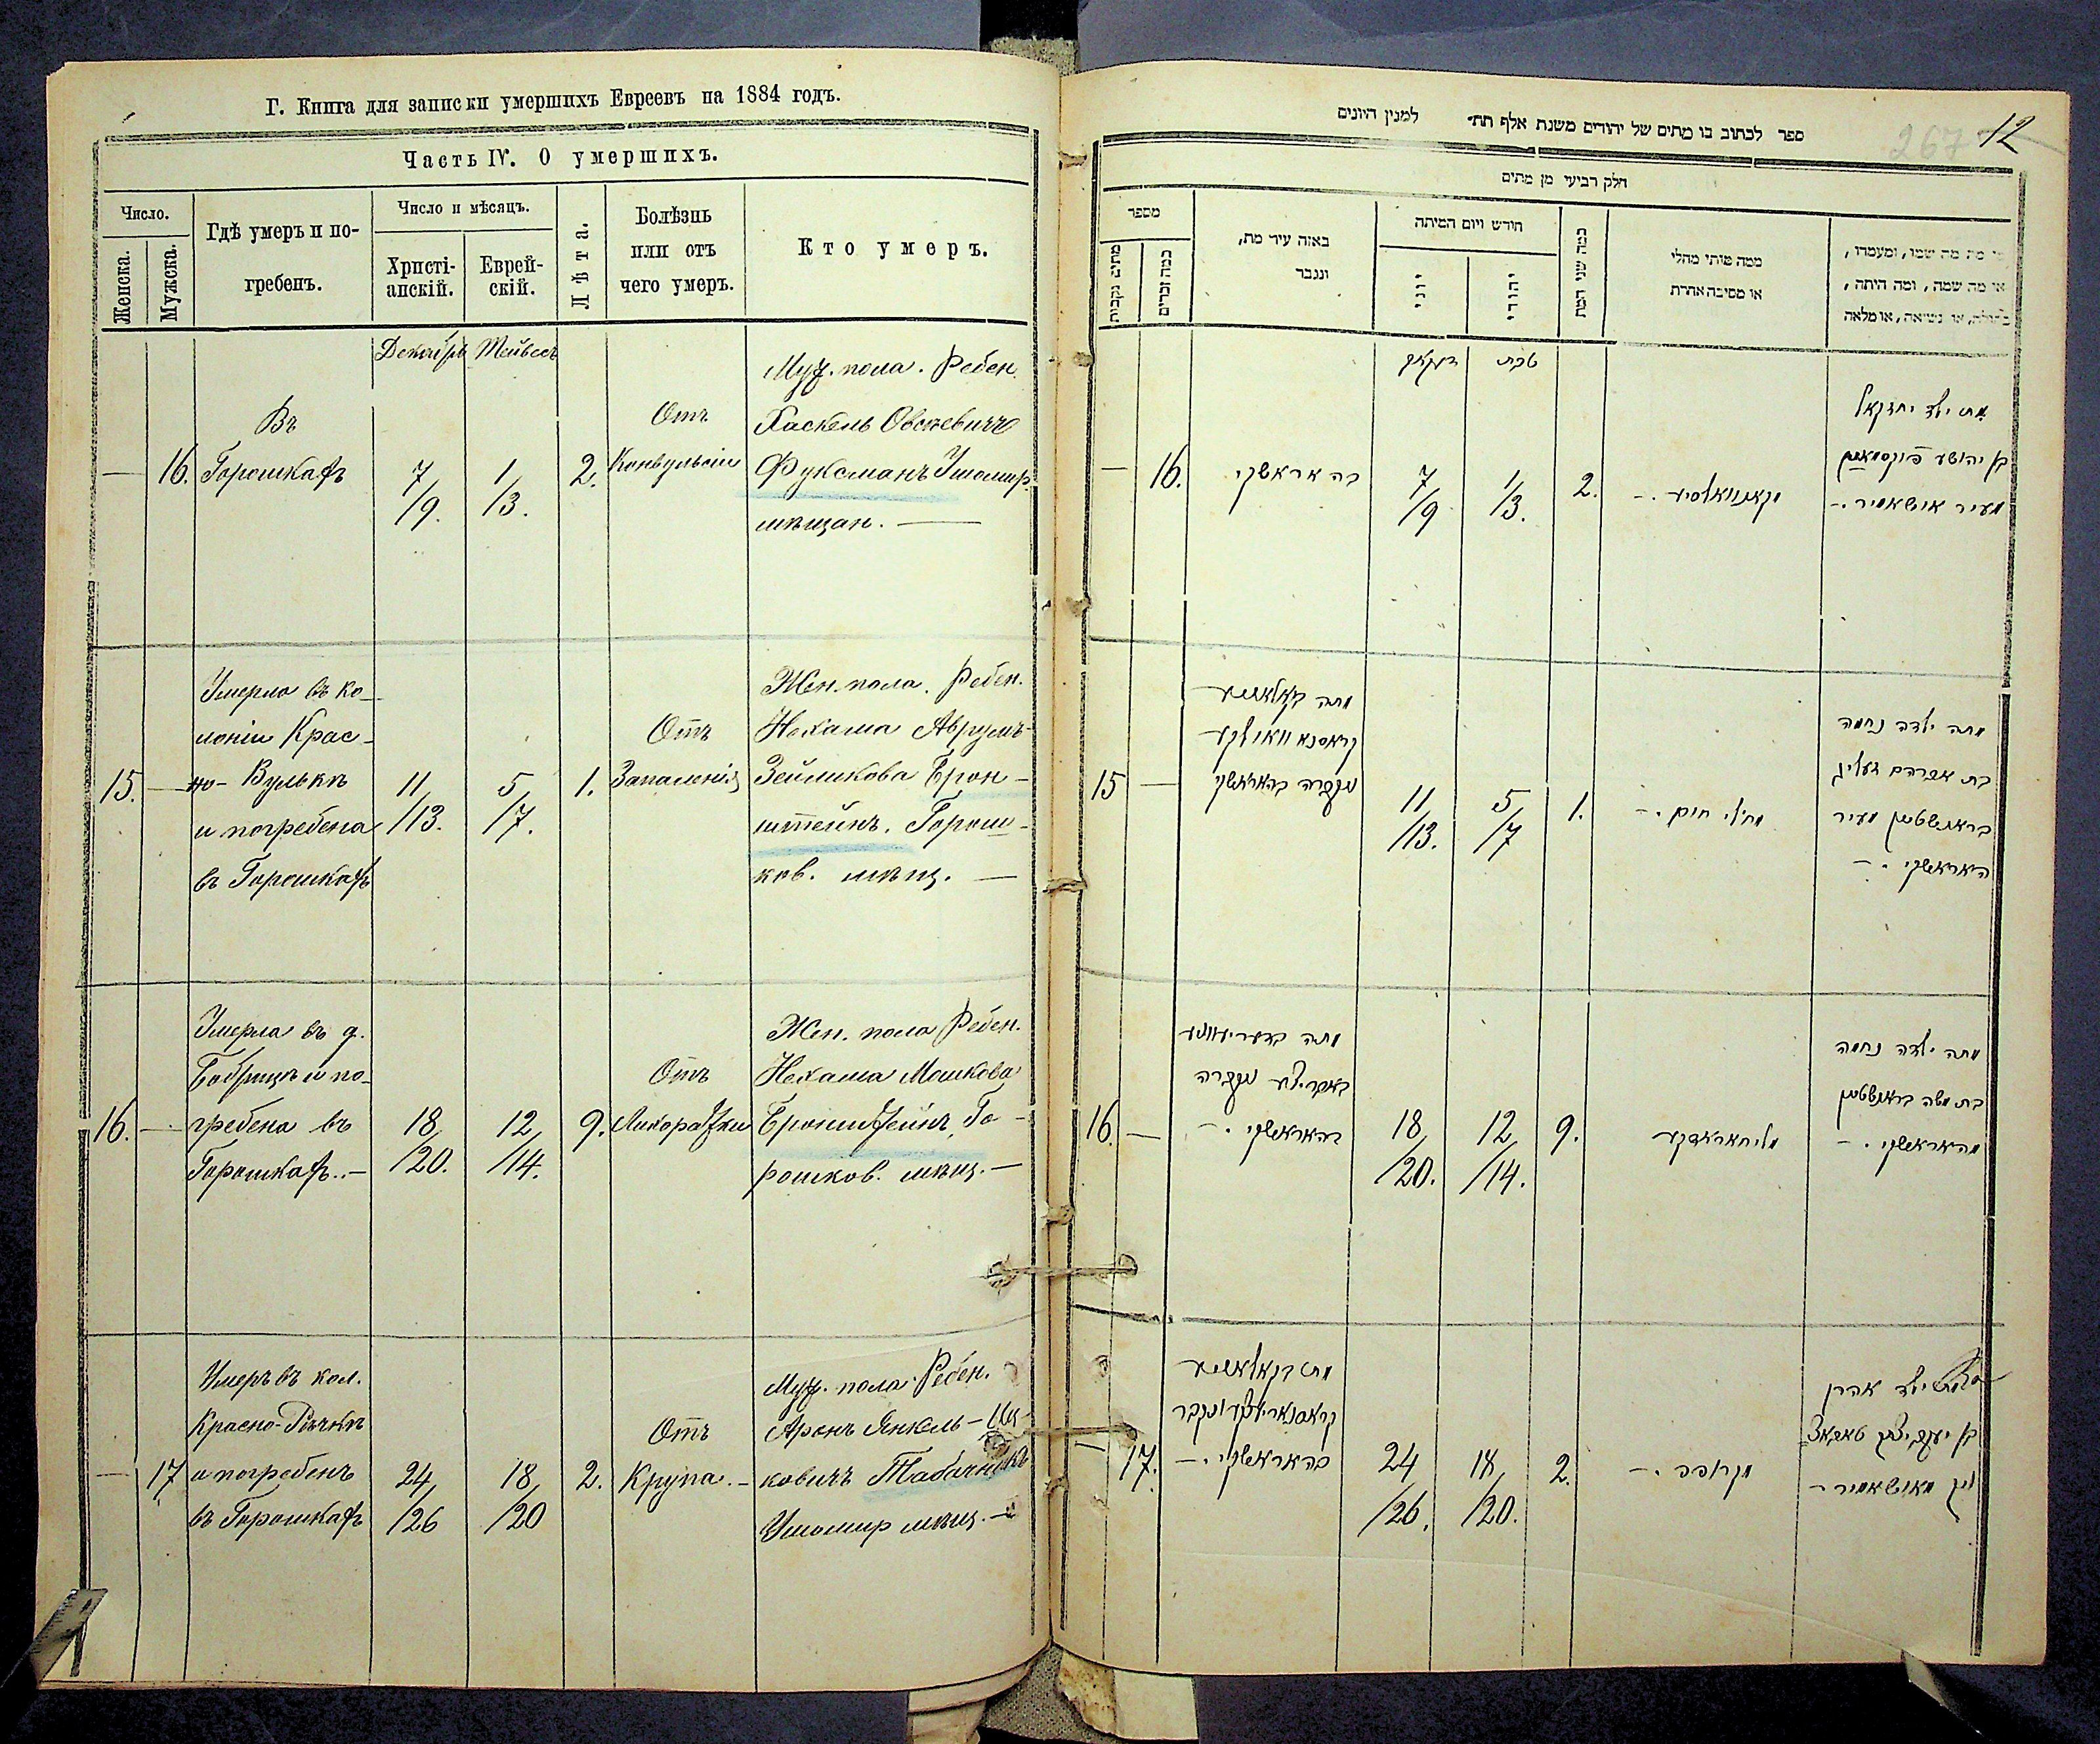 Г. Книга для записки умершихъ Евреевъ на 1884 годъ.
Часть IV. О умершихъ.
Число.
Женска.
Мужска.
Гдѣ умеръ и по-
гребенъ.
Число и мѣсяцъ.
Христі-
анскій.
Еврей-
скій.
Лѣта.
Болѣзнь
или отъ
чего умеръ.
Кто умеръ.
Декабрь
Тейвесъ
— 16.
Въ
Горошкахъ
7/9.
1/3.
2.
Отъ
Конвульсіи
Муж. пола. Ребен.
Хаскель Овсѣевичъ
Фуксманъ Ушомир.
мѣщан. —
15. —
Умерла въ ко-
лоніи Крас-
но-Вулькѣ
и погребена
въ Горошкахъ
11/13.
5/7.
1.
Отъ
Запаленія
Жен. пола. Ребен.
Нехама Аврумъ-
Зейликова Брон-
штейнъ. Горош-
ков. мѣщ. —
16. —
Умерла въ д.
Бобрицѣ и по-
гребена въ
Горошкахъ. —
18/20.
12/14.
9.
Отъ
Лихорадки
Жен. пола Ребен.
Нехама Мошкова
Бронштейнъ, Го-
рошков. мѣщ. —
— 17
Умеръ въ кол.
Красно-Рѣчкѣ
и погребенъ
въ Горошкахъ
24/26
18/20
2.
Отъ
Крупа. —
Муж. пола. Ребен.
Аронъ Янкель-Иц-
ковичъ Табачникъ
Ушомир мѣщ. —
267 12
ספר לכתוב בו מתים של יהודים משנת אלף תת״ למנין היונים
חלק רביעי מן מתים
מספר
מתים נקבות
כמה זכרים
באזה עיר מת,
ונגבר
חודש ויום המיתה
יוני
יהודי
כמה שני המת
ממה מותו מחלי
או מסיבה אחרת
מי מת מה שמו, ומעמדו,
או מה שמה, ומה היתה,
בתולה, או נשיאה, או מלאה
דעקאבר
טבת
— 16.
בה אראשקי
7/9
1/3.
2.
מת ילד יחזקאל
בן יהושע פוקסמאן
מעיר אושאמיר. -
15 —
מתה
קראסנא וואולקע
11/13.
5/7
1.
מחלי חום. -
מתה ילדה נחמה
בת אברהם זעליג
בראנשטיין מעיר
האראשקי. -
16. —
בהאראשקי. -
18/20.
12/14.
9.
מתה ילדה נחמה
בת משה בראנשטיין
מהאראשקי. -
— 17.
בהאראשקי. -
24/26.
18/20.
2.
מקרופ. -
ילד אהרן
בן יעקב יצחק טאבאצ
ניק מאושאמיר -